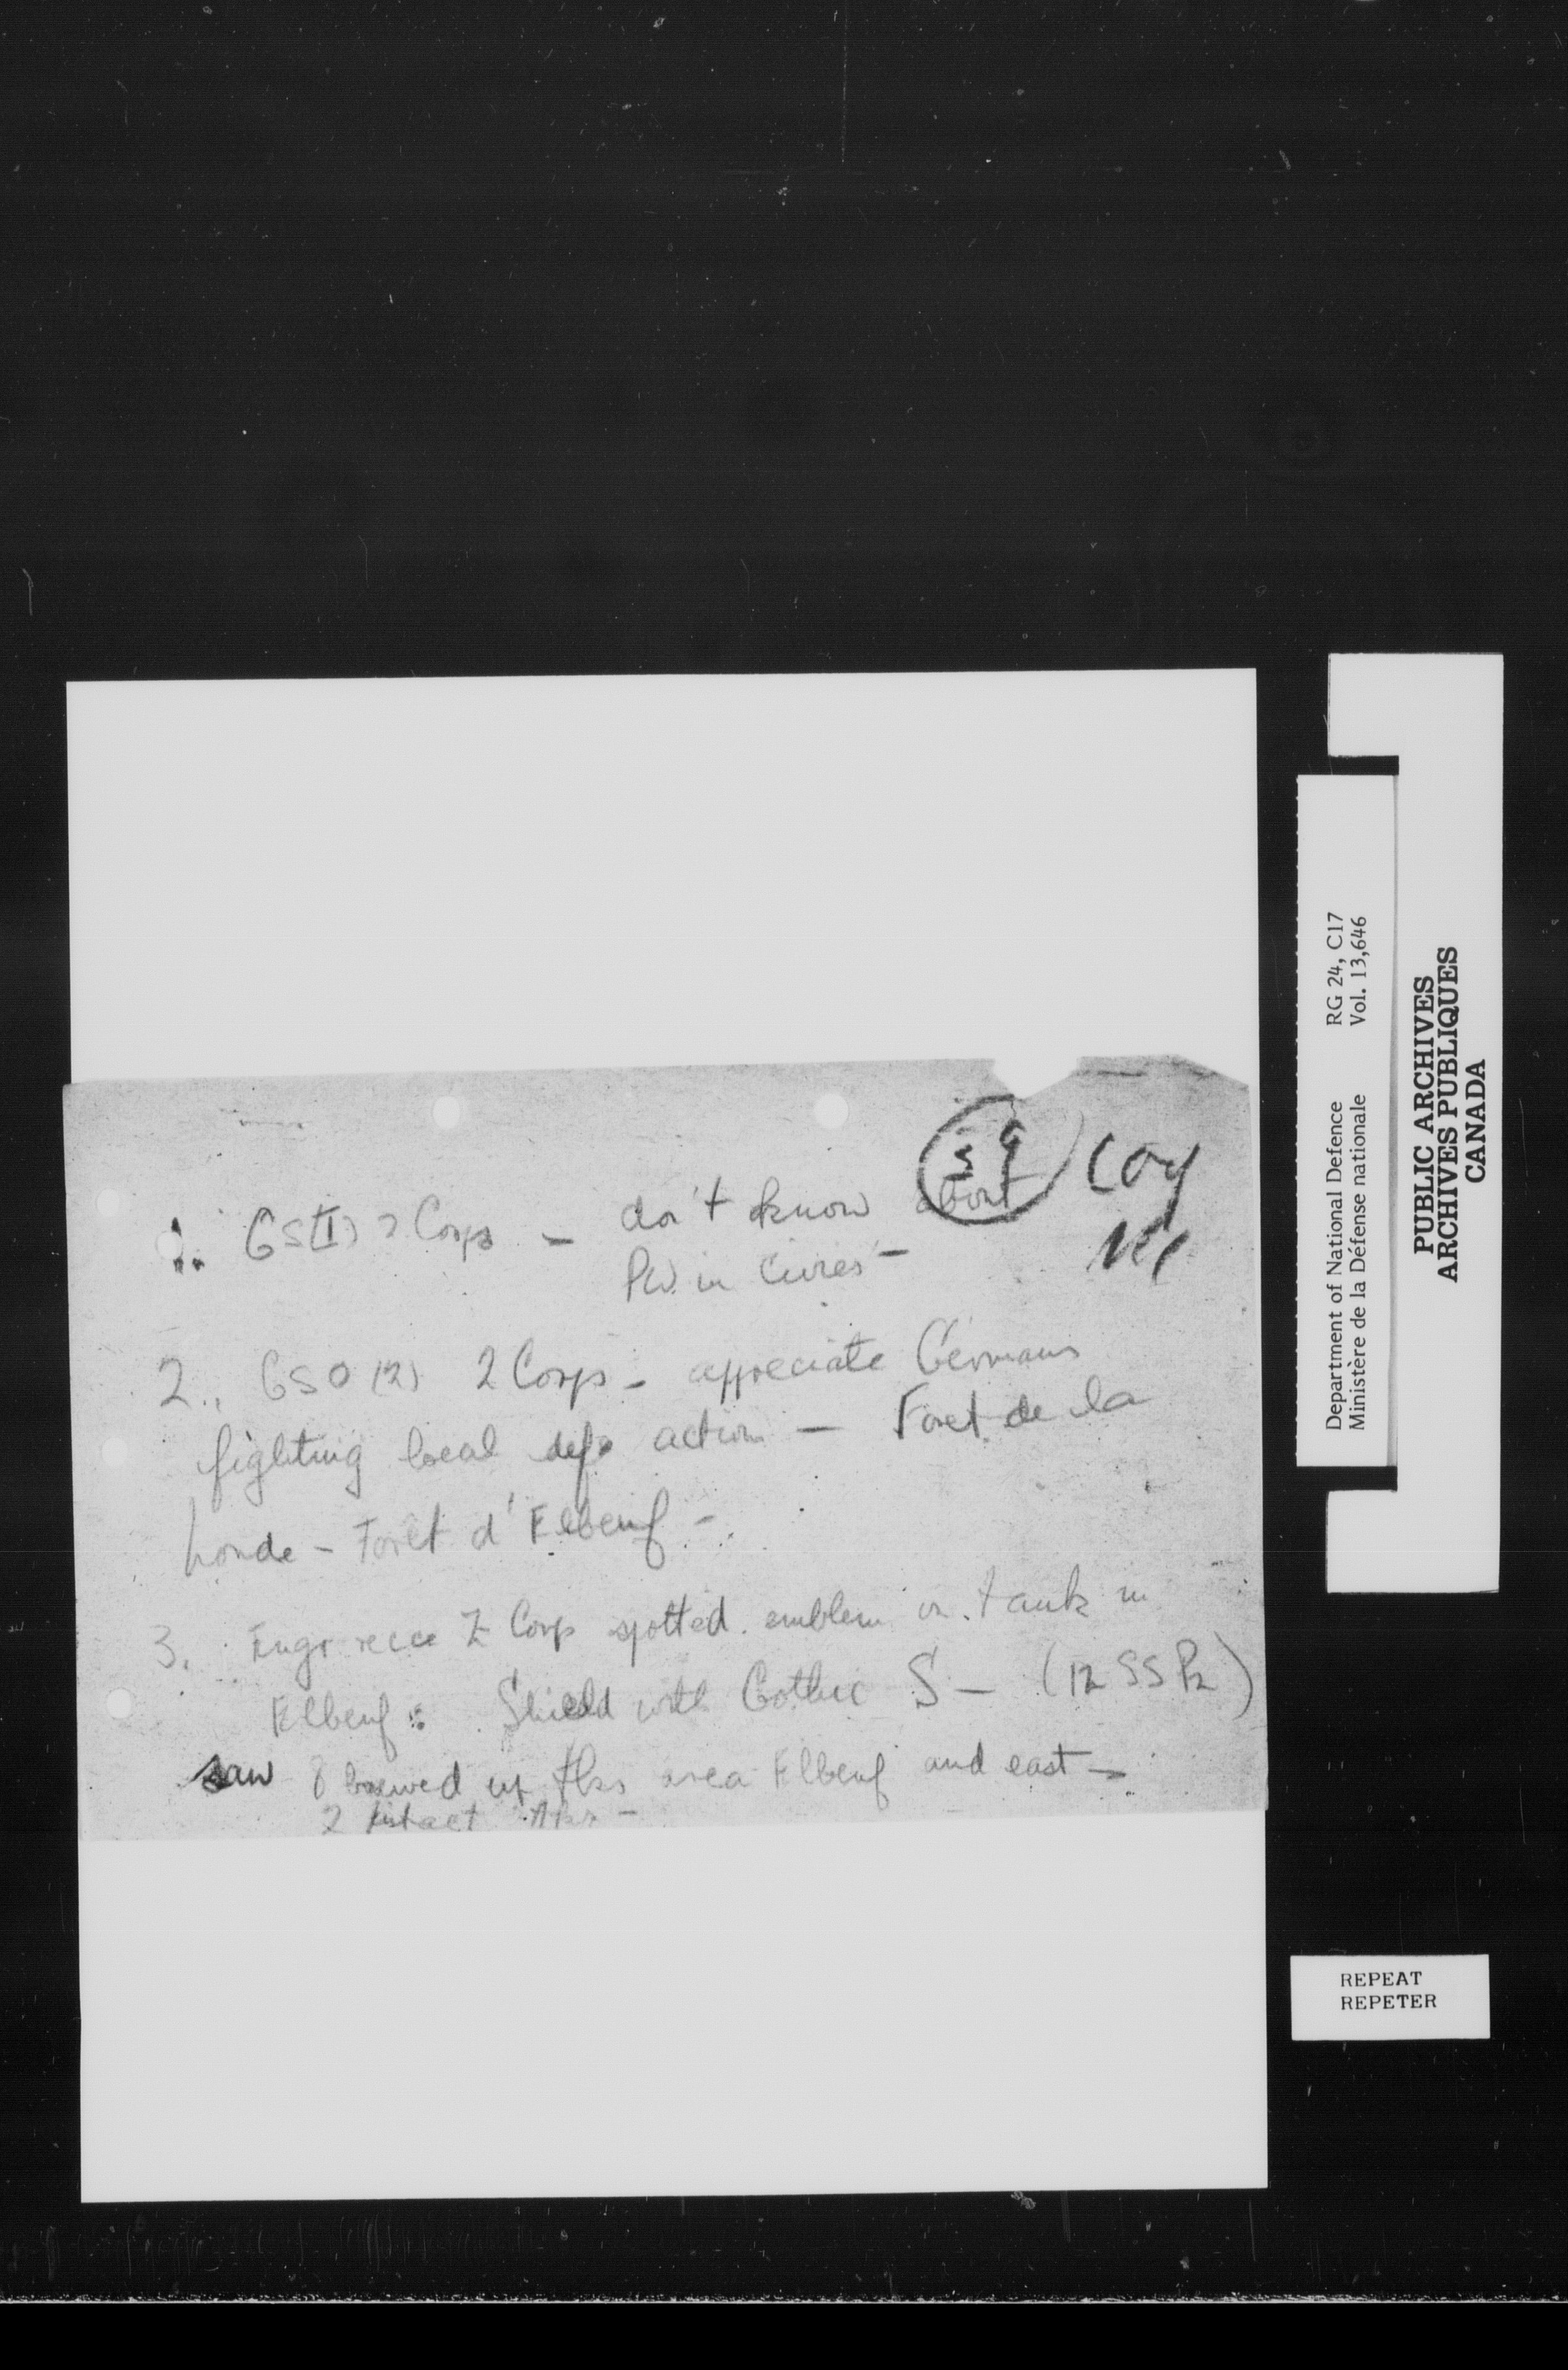 59
Log
1. GS(I) 2 Corps – don't know about
PW in civies –
2. GSO (2) 2 Corps – appreciate Germans
fighting local def. action – Foret de la
Londe – Foret d'Elbeuf –
3. Engr recce 2 Corp spotted emblem on tank in
Elbeuf: Shield with Gothic S – (12 SS Pz)
saw 8 brewed up tks area Elbeuf and east –
2 intact tks –
Department of National Defence RG 24, C17
Ministère de la Défense nationale Vol. 13,646
PUBLIC ARCHIVES
ARCHIVES PUBLIQUES
CANADA
REPEAT
REPETER